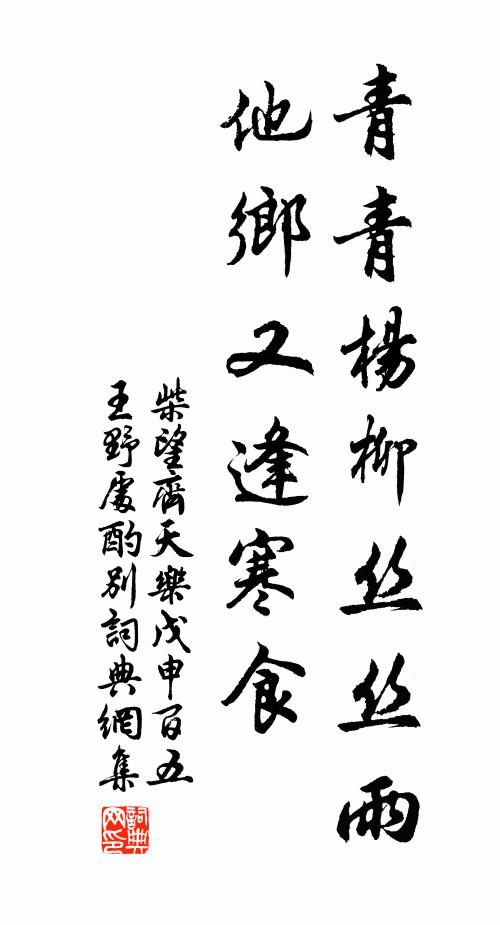 青青楊柳丝丝雨
他鄉又逢寒食
柴望齊天樂戊申百五
王野處酌别詞典網集
詞典网印